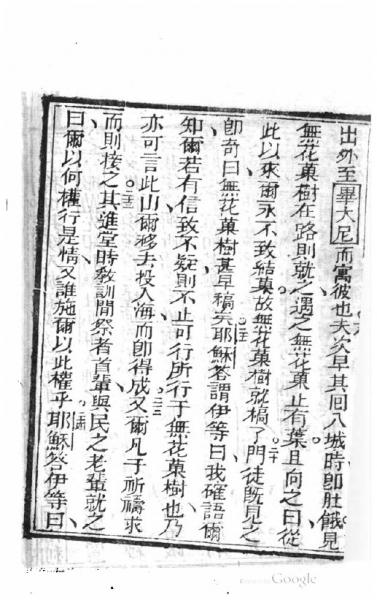 出外至畢大尼而寓彼也十八夫次早其囘入城時即肚餓見
無花菓樹在路則就之遇之無花菓止有葉且向之曰從
此以來爾永不致結菓故無花菓樹就槁了二十門徒旣見之
即奇曰無花菓樹甚早槁矣二一耶穌答謂伊等曰我確語爾
知爾若有信致不疑則不止可行所行于無花菓樹也乃
亦可言此山爾移去投入海而即得成二二又爾凡于祈禱求
而則接之二三其進堂時敎訓間祭者首輩與民之老輩就之
曰爾以何權行是情又誰施爾以此權乎二四耶穌答伊等曰
Google